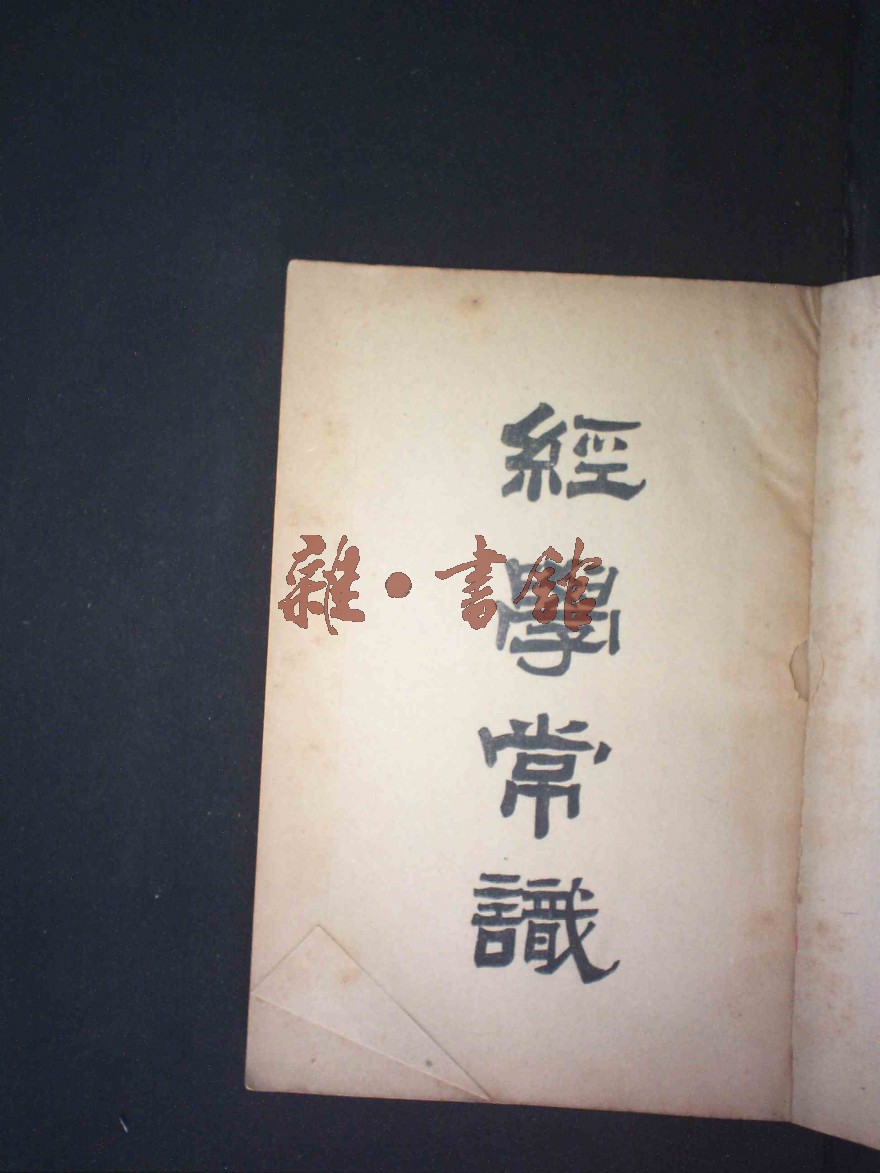 經學常識
雜·書館